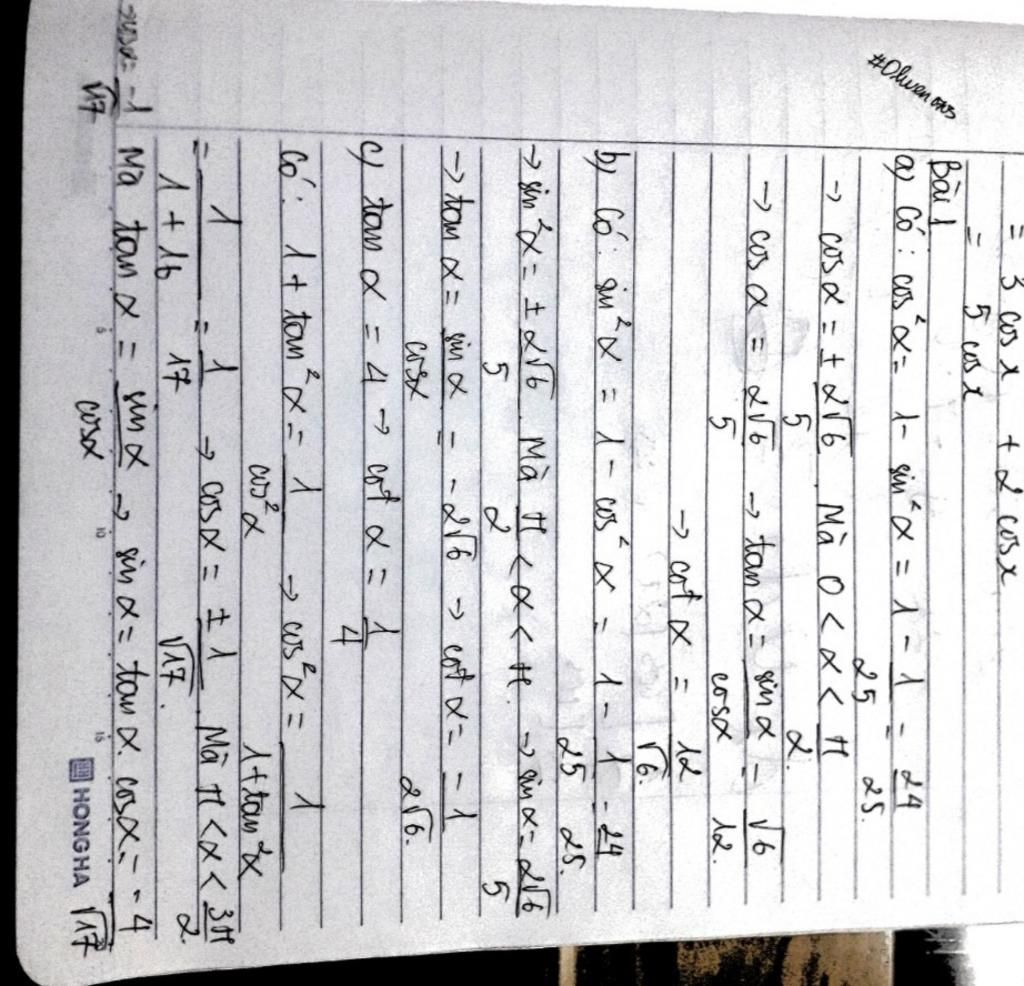 = 3 cos x + 2 cos x
= 5 cos x
Bài 1
a) Có: cos²α = 1 - sin²α = 1 - 1/25 = 24/25.
→ cos α = ± 2√6/5. Mà 0 < α < π/2.
→ cos α = 2√6/5 → tan α = sin α/cos α = √6/12.
→ cot α = 12/√6.
b) Có: sin²α = 1 - cos²α = 1 - 1/25 = 24/25.
→ sin²α = ± 2√6/5. Mà π/2 < α < π. → sin α = 2√6/5
→ tan α = sin α/cos α = - 2√6 → cot α = - 1/2√6.
c) tan α = 4 → cot α = 1/4
Có: 1 + tan²α = 1/cos²α → cos²α = 1/1+tan²α
= 1/1+16 = 1/17 → cos α = ± 1/√17. Mà π < α < 3π/2.
→ cos α = -1/√17
Mà tan α = sin α/cos α → sin α = tan α. cos α = - 4/√17
5 10 15
HONG HA